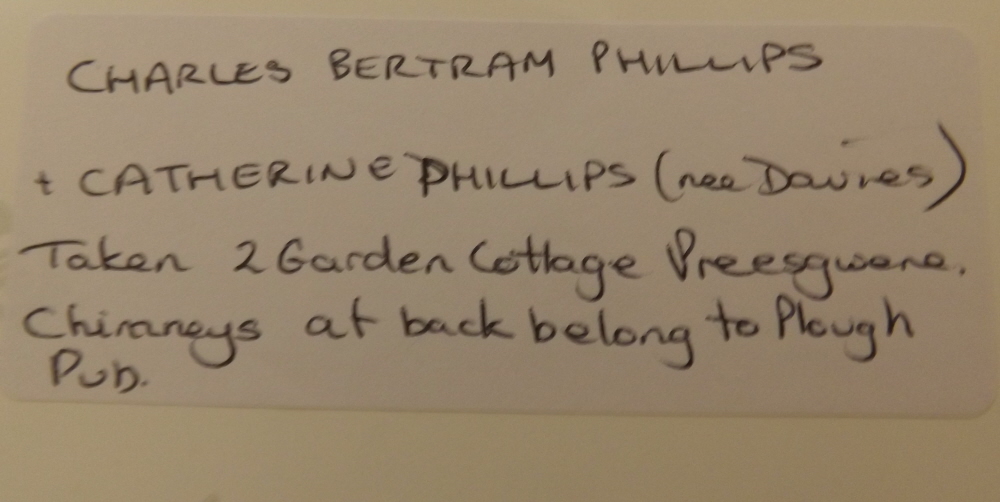 CHARLES BERTRAM PHILLIPS
+ CATHERINE PHILLIPS (nee Davies)
Taken 2 Garden Cottage Preesgwene.
Chimneys at back belong to Plough
Pub.